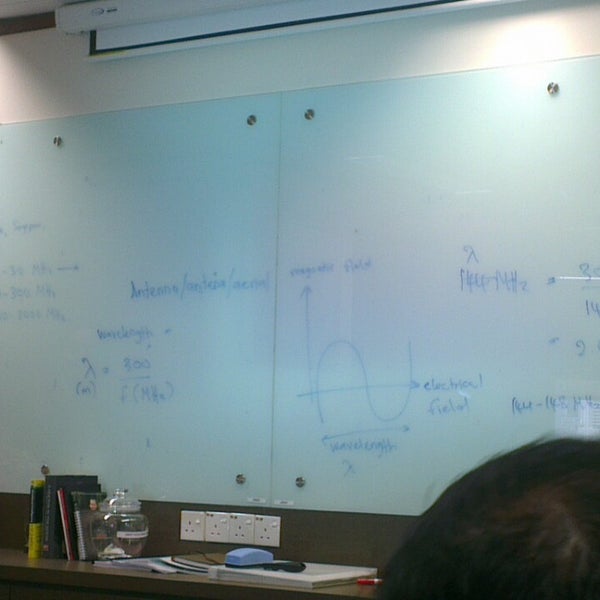 -30 MHz →
-300 MHz
Antenna/antena/aerial
wavelength =
λ = 300
(m) f (MHz)
magnetic field
electrical
field
wavelength
λ
λ
144 MHz =
=
144-148 MHz